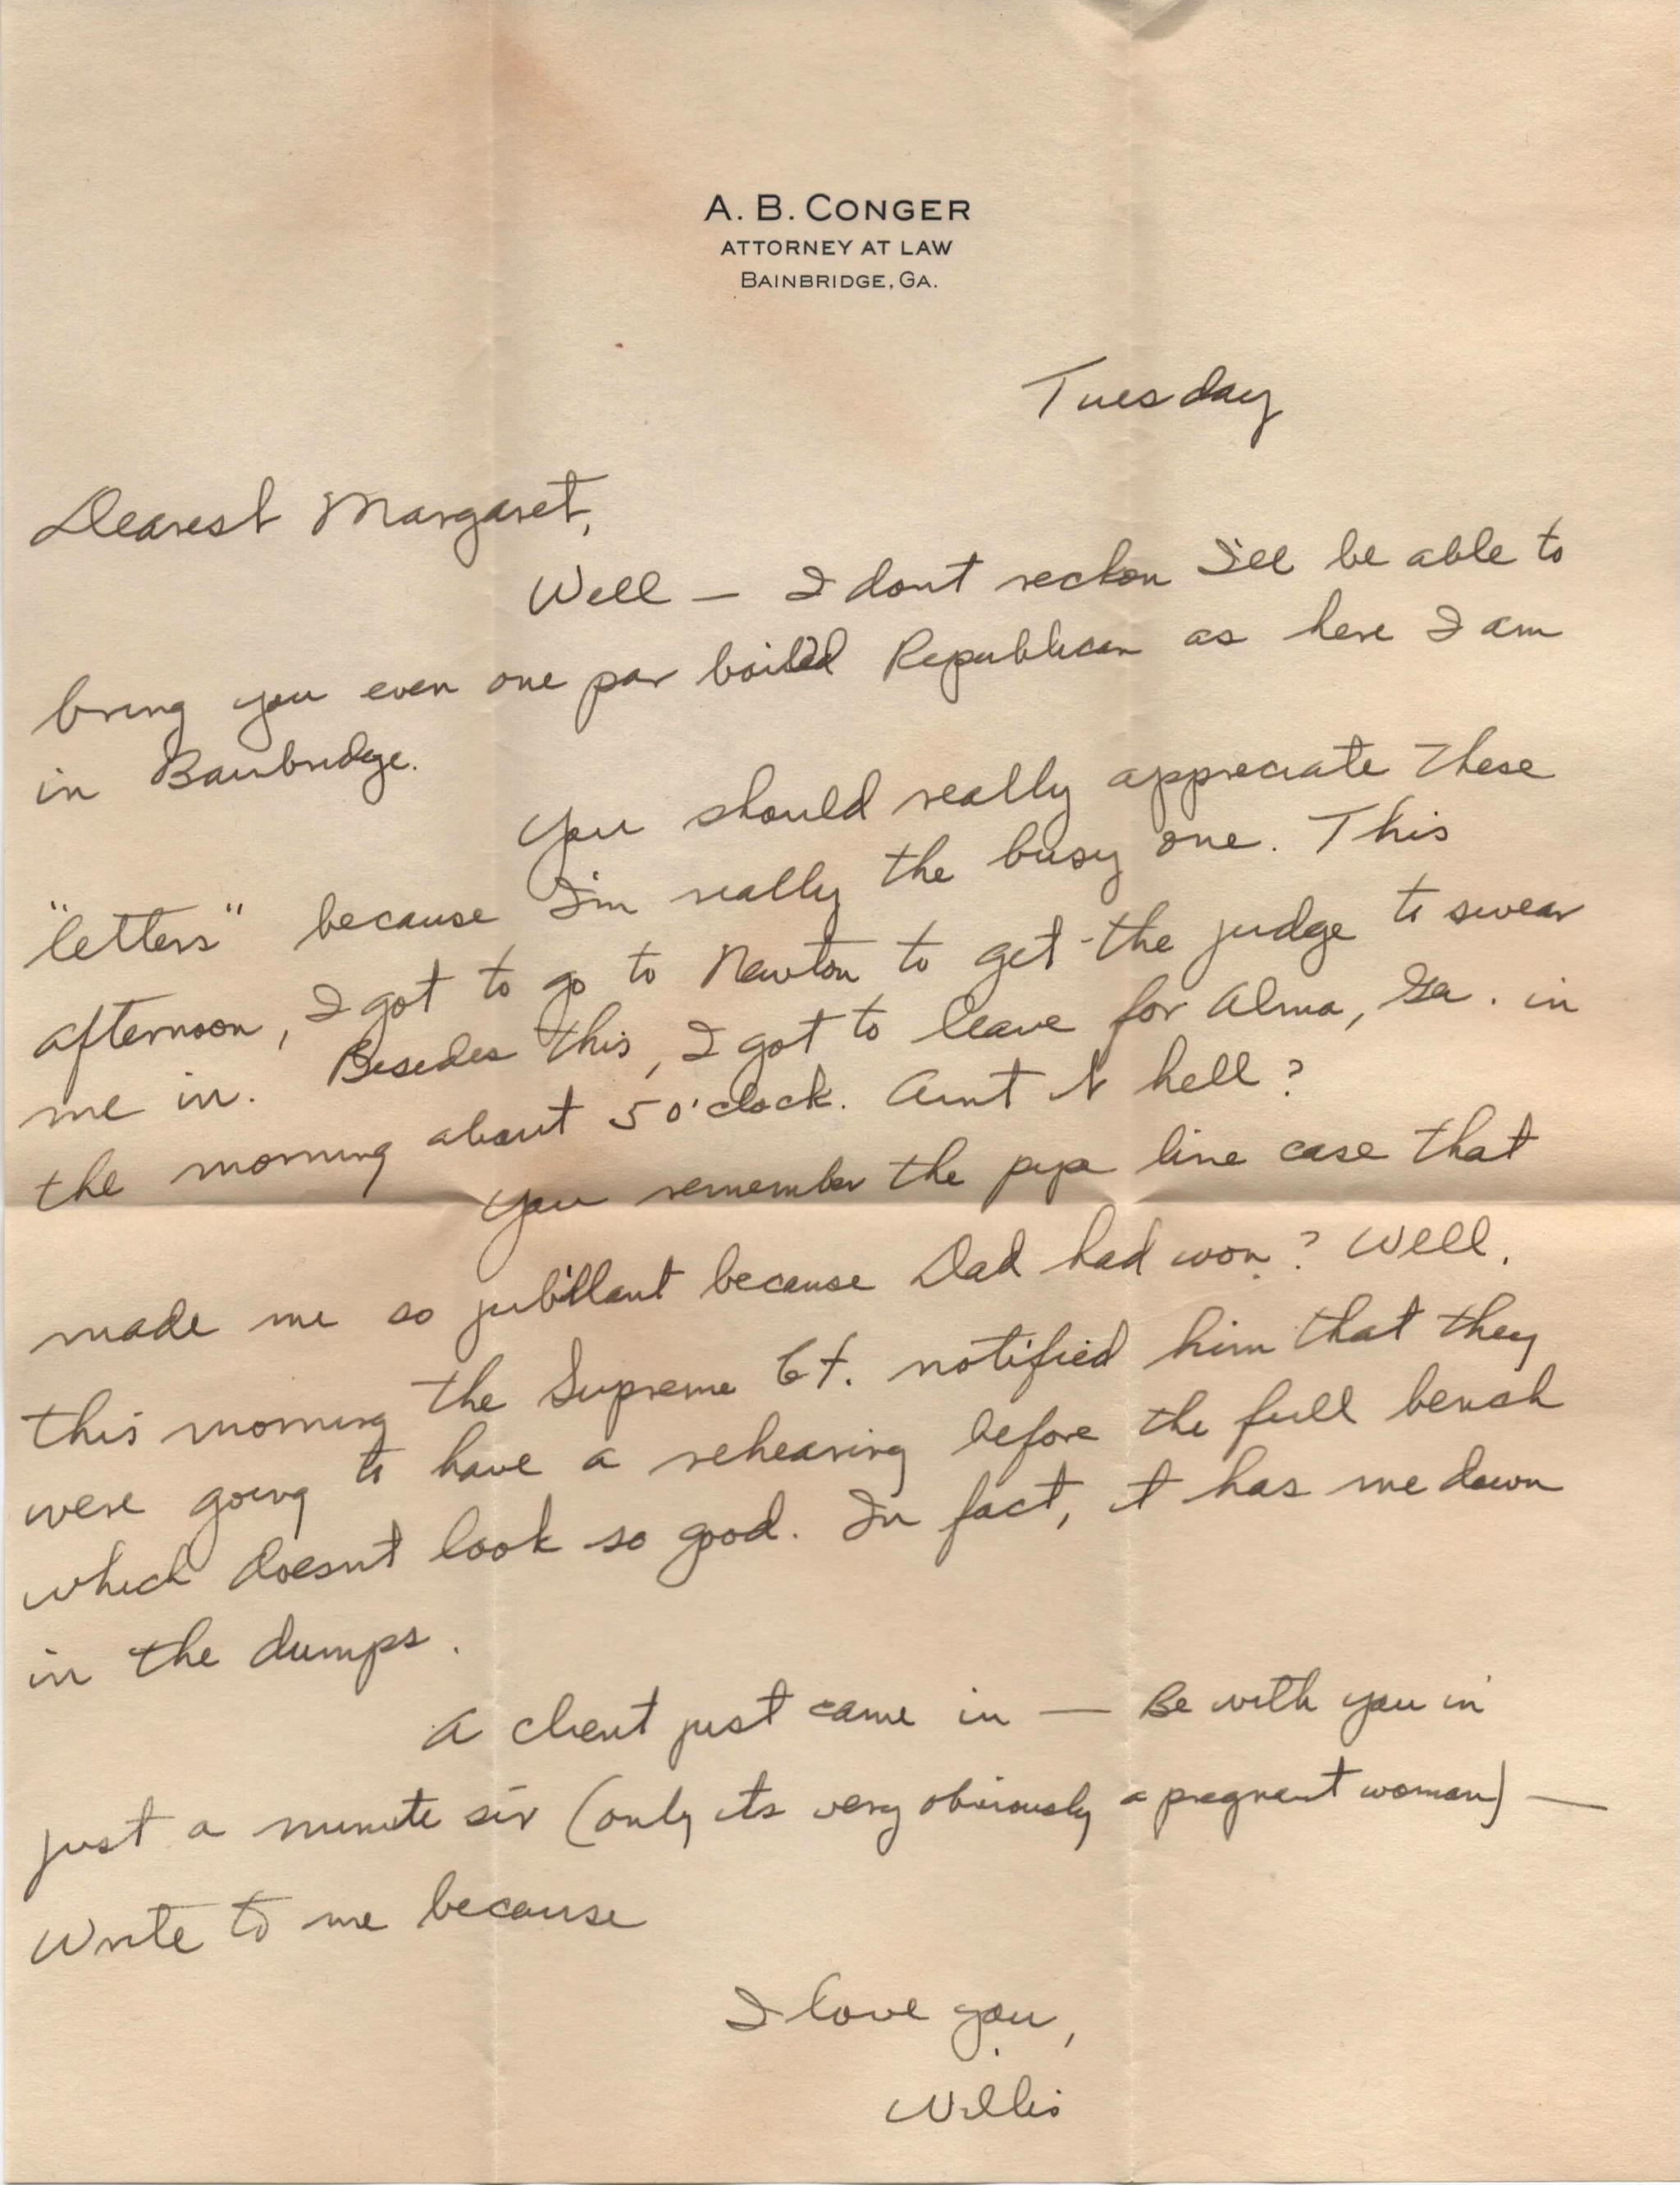 A. B. CONGER
ATTORNEY AT LAW
BAINBRIDGE, GA.
Tuesday
Dearest Margaret,
Well — I dont reckon I'll be able to
bring you even one par boiled Republican as here I am
in Bainbridge.
You should really appreciate these
"letters" because I'm really the busy one. This
afternoon, I got to go to Newton to get the judge to swear
me in. Besides this, I got to leave for Alma, Ga. in
the morning about 5 o'clock. Aint it hell?
You remember the pipe line case that
made me so jubillant because Dad had won? Well,
this morning the Supreme Ct. notified him that they
were going to have a rehearing before the full bench
which doesnt look so good. In fact, it has me down
in the dumps.
A client just came in — Be with you in
just a minute sir (only its very obviously a pregnant woman) —
Write to me because
I love you,
Willis